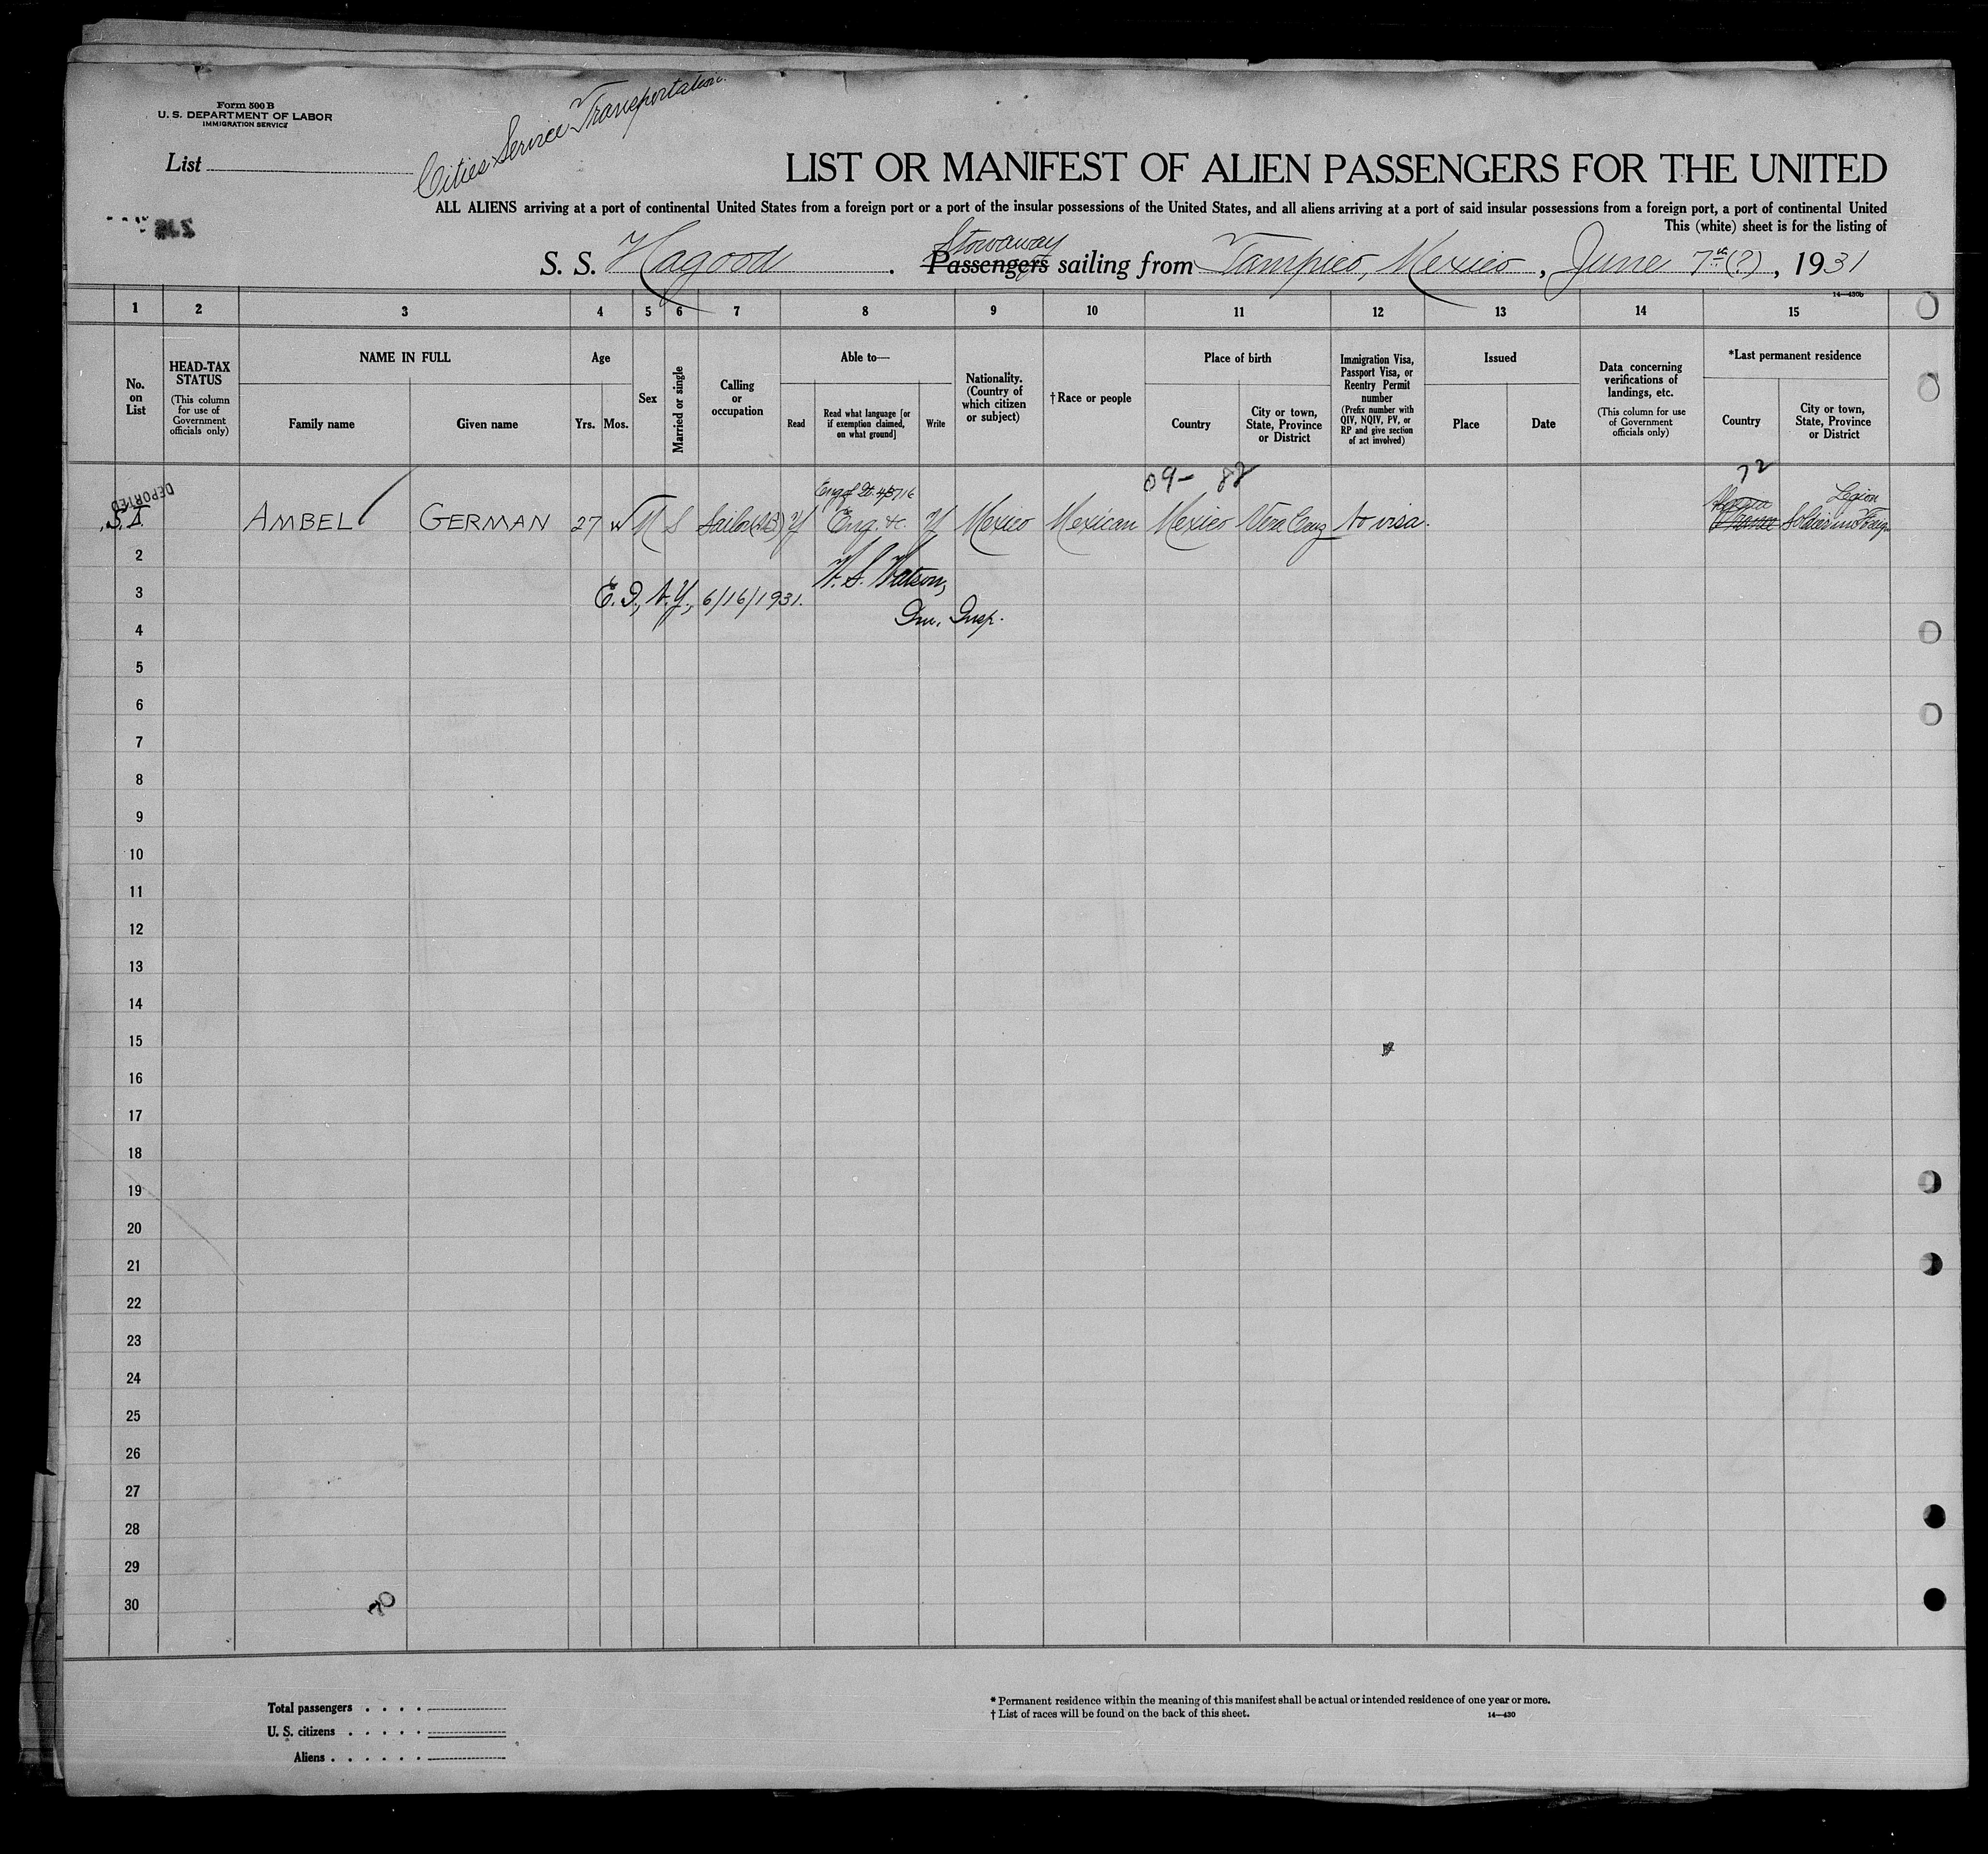 Form 500 B
U. S. DEPARTMENT OF LABOR
IMMIGRATION SERVICE
List
Cities Service Transportation
LIST OR MANIFEST OF ALIEN PASSENGERS FOR THE UNITED
ALL ALIENS arriving at a port of continental United States from a foreign port or a port of the insular possessions of the United States, and all aliens arriving at a port of said insular possessions from a foreign port, a port of continental United
This (white) sheet is for the listing of
Stowaway
S. S. Hagood. Passengers sailing from Tampico, Mexico, June 7th (?), 1931
14—430b
1 2 3 4 5 6 7 8 9 10 11 12 13 14 15
No. on List
HEAD-TAX STATUS
(This column for use of Government officials only)
NAME IN FULL
Family name
Given name
Age
Yrs. Mos.
Sex
Married or single
Calling or occupation
Able to—
Read
Read what language [or if exemption claimed, on what ground]
Write
Nationality. (Country of which citizen or subject)
†Race or people
Place of birth
Country
City or town, State, Province or District
Immigration Visa, Passport Visa, or Reentry Permit number
(Prefix number with QIV, NQIV, PV, or RP and give section of act involved)
Issued
Place
Date
Data concerning verifications of landings, etc.
(This column for use of Government officials only)
*Last permanent residence
Country
City or town, State, Province or District
09- 88
72
DEPORTED
Legion
S.I. AMBEL GERMAN 27 M S Sailor Y Eng. &c. Y Mexico Mexican Mexico Vera Cruz No visa. France Soldier in Foreign
2
W. S. Watson,
3
E. I., N.Y., 6/16/1931.
Im. Insp.
4
5
6
7
8
9
10
11
12
13
14
15
16
17
18
19
20
21
22
23
24
25
26
27
28
29
30
Total passengers . . . .
U. S. citizens . . . . .
Aliens . . . . . .
* Permanent residence within the meaning of this manifest shall be actual or intended residence of one year or more.
† List of races will be found on the back of this sheet.
14—430